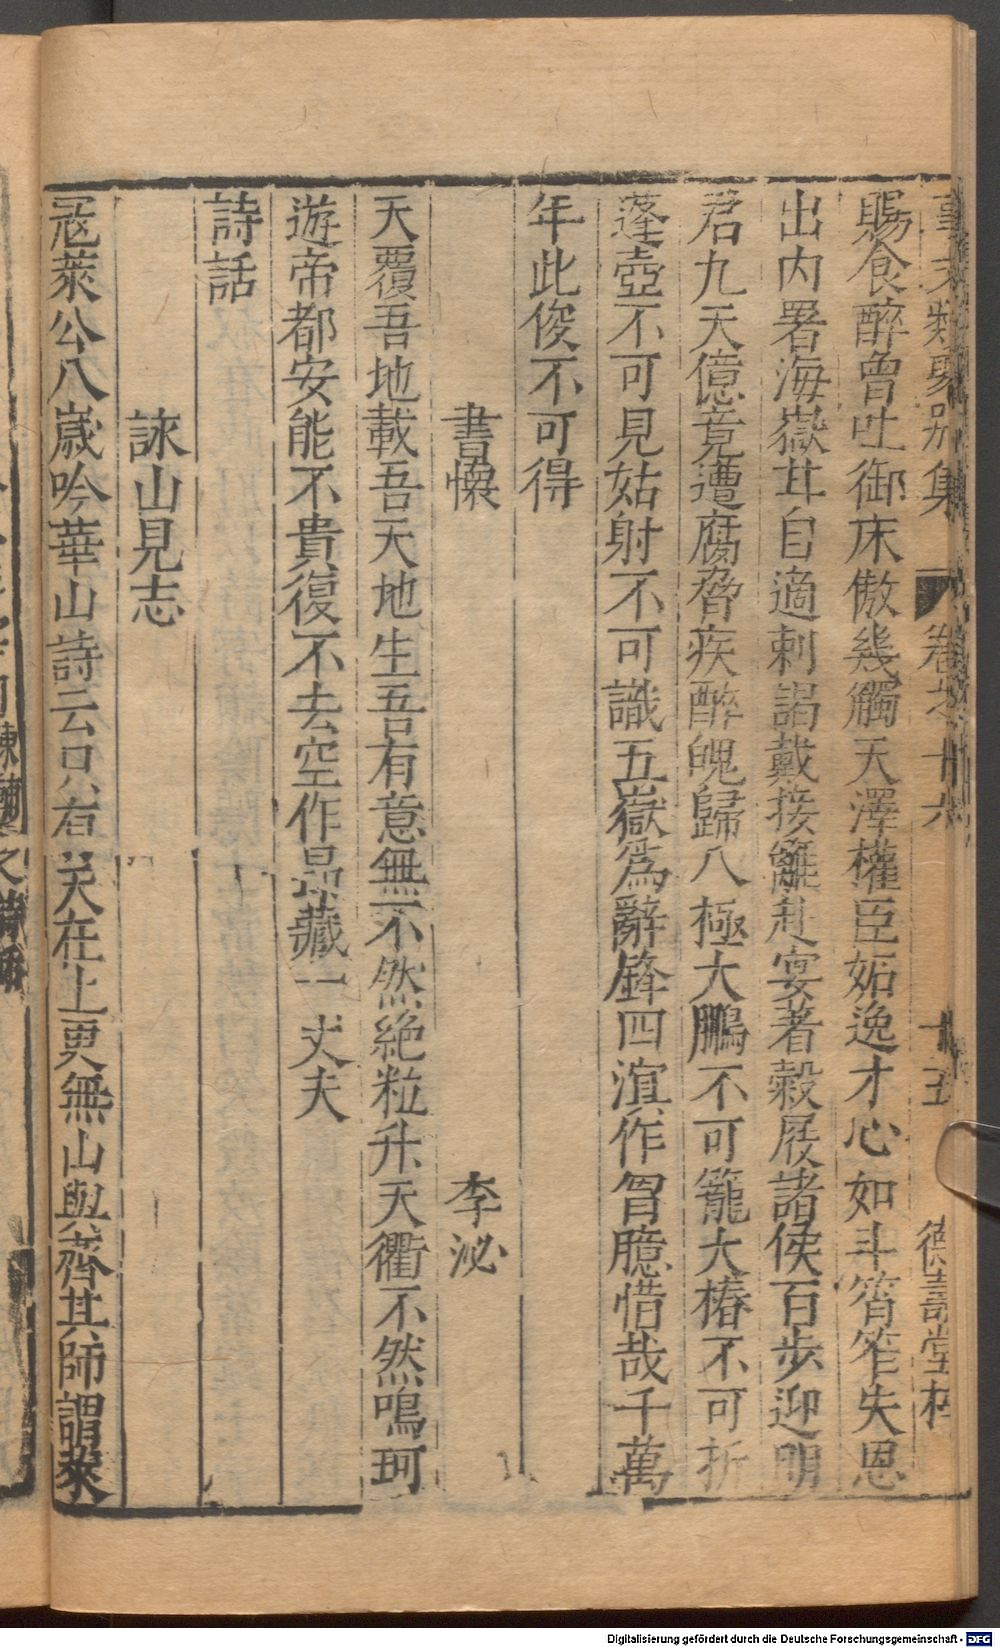 事文類聚別集 卷之十六 十五 德壽堂梓
賜食醉曾吐御床傲幾觸天澤權臣妬逸才心如斗筲窄失恩
出內署海嶽甘自適刺謁戴接䍦赴宴著榖屐諸侯百步迎明
君九天億竟遭腐脅疾醉魄歸八極大鵬不可籠大椿不可折
蓬壺不可見姑射不可識五嶽爲辭鋒四溟作胷臆惜哉千萬
年此俊不可得
書懷 李泌
天覆吾地載吾天地生吾有意無不然絶粒升天衢不然鳴珂
遊帝都安能不貴復不去空作昂藏一丈夫
詩話
詠山見志
冦萊公八嵗吟華山詩云只有天在上更無山與齊其師謂萊
Digitalisierung gefördert durch die Deutsche Forschungsgemeinschaft - DFG